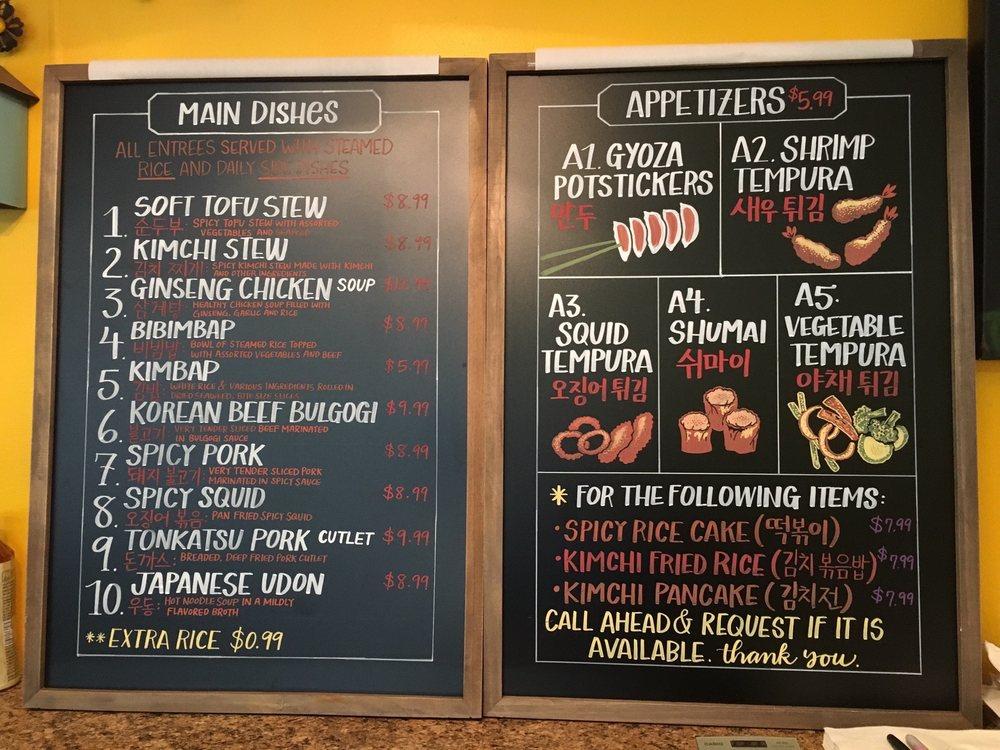 MAIN DISHES
ALL ENTREES SERVED WITH STEAMED
RICE AND DAILY SIDE DISHES
1. SOFT TOFU STEW $8.99
순두부 - SPICY TOFU STEW WITH ASSORTED
VEGETABLES AND SEAFOOD
2. KIMCHI STEW $8.99
김치 찌개: SPICY KIMCHI STEW MADE WITH KIMCHI
AND OTHER INGREDIENTS
3. GINSENG CHICKEN SOUP
삼계탕: HEALTHY CHICKEN SOUP FILLED WITH
GINSENG, GARLIC AND RICE
4. BIBIMBAP $8.99
비빔밥: BOWL OF STEAMED RICE TOPPED
WITH ASSORTED VEGETABLES AND BEEF
5. KIMBAP $5.99
김밥: WHITE RICE & VARIOUS INGREDIENTS ROLLED IN
DRIED SEAWEED, BITE SIZE SLICES
6. KOREAN BEEF BULGOGI $9.99
불고기: VERY TENDER SLICED BEEF MARINATED
IN BULGOGI SAUCE
7. SPICY PORK $8.99
돼지 불고기: VERY TENDER SLICED PORK
MARINATED IN SPICY SAUCE
8. SPICY SQUID $8.99
오징어 볶음: PAN FRIED SPICY SQUID
9. TONKATSU PORK CUTLET $9.99
돈까스: BREADED, DEEP FRIED PORK CUTLET
10. JAPANESE UDON $8.99
우동: HOT NOODLE SOUP IN A MILDLY
FLAVORED BROTH
**EXTRA RICE $0.99
APPETIZERS $5.99
A1. GYOZA
POTSTICKERS
만두
A2. SHRIMP
TEMPURA
새우 튀김
A3.
SQUID
TEMPURA
오징어 튀김
A4.
SHUMAI
쉬마이
A5.
VEGETABLE
TEMPURA
야채 튀김
* FOR THE FOLLOWING ITEMS:
• SPICY RICE CAKE (떡볶이) $7.99
• KIMCHI FRIED RICE (김치 볶음밥) $7.99
• KIMCHI PANCAKE (김치전) $7.99
CALL AHEAD & REQUEST IF IT IS
AVAILABLE. thank you.
CASIO